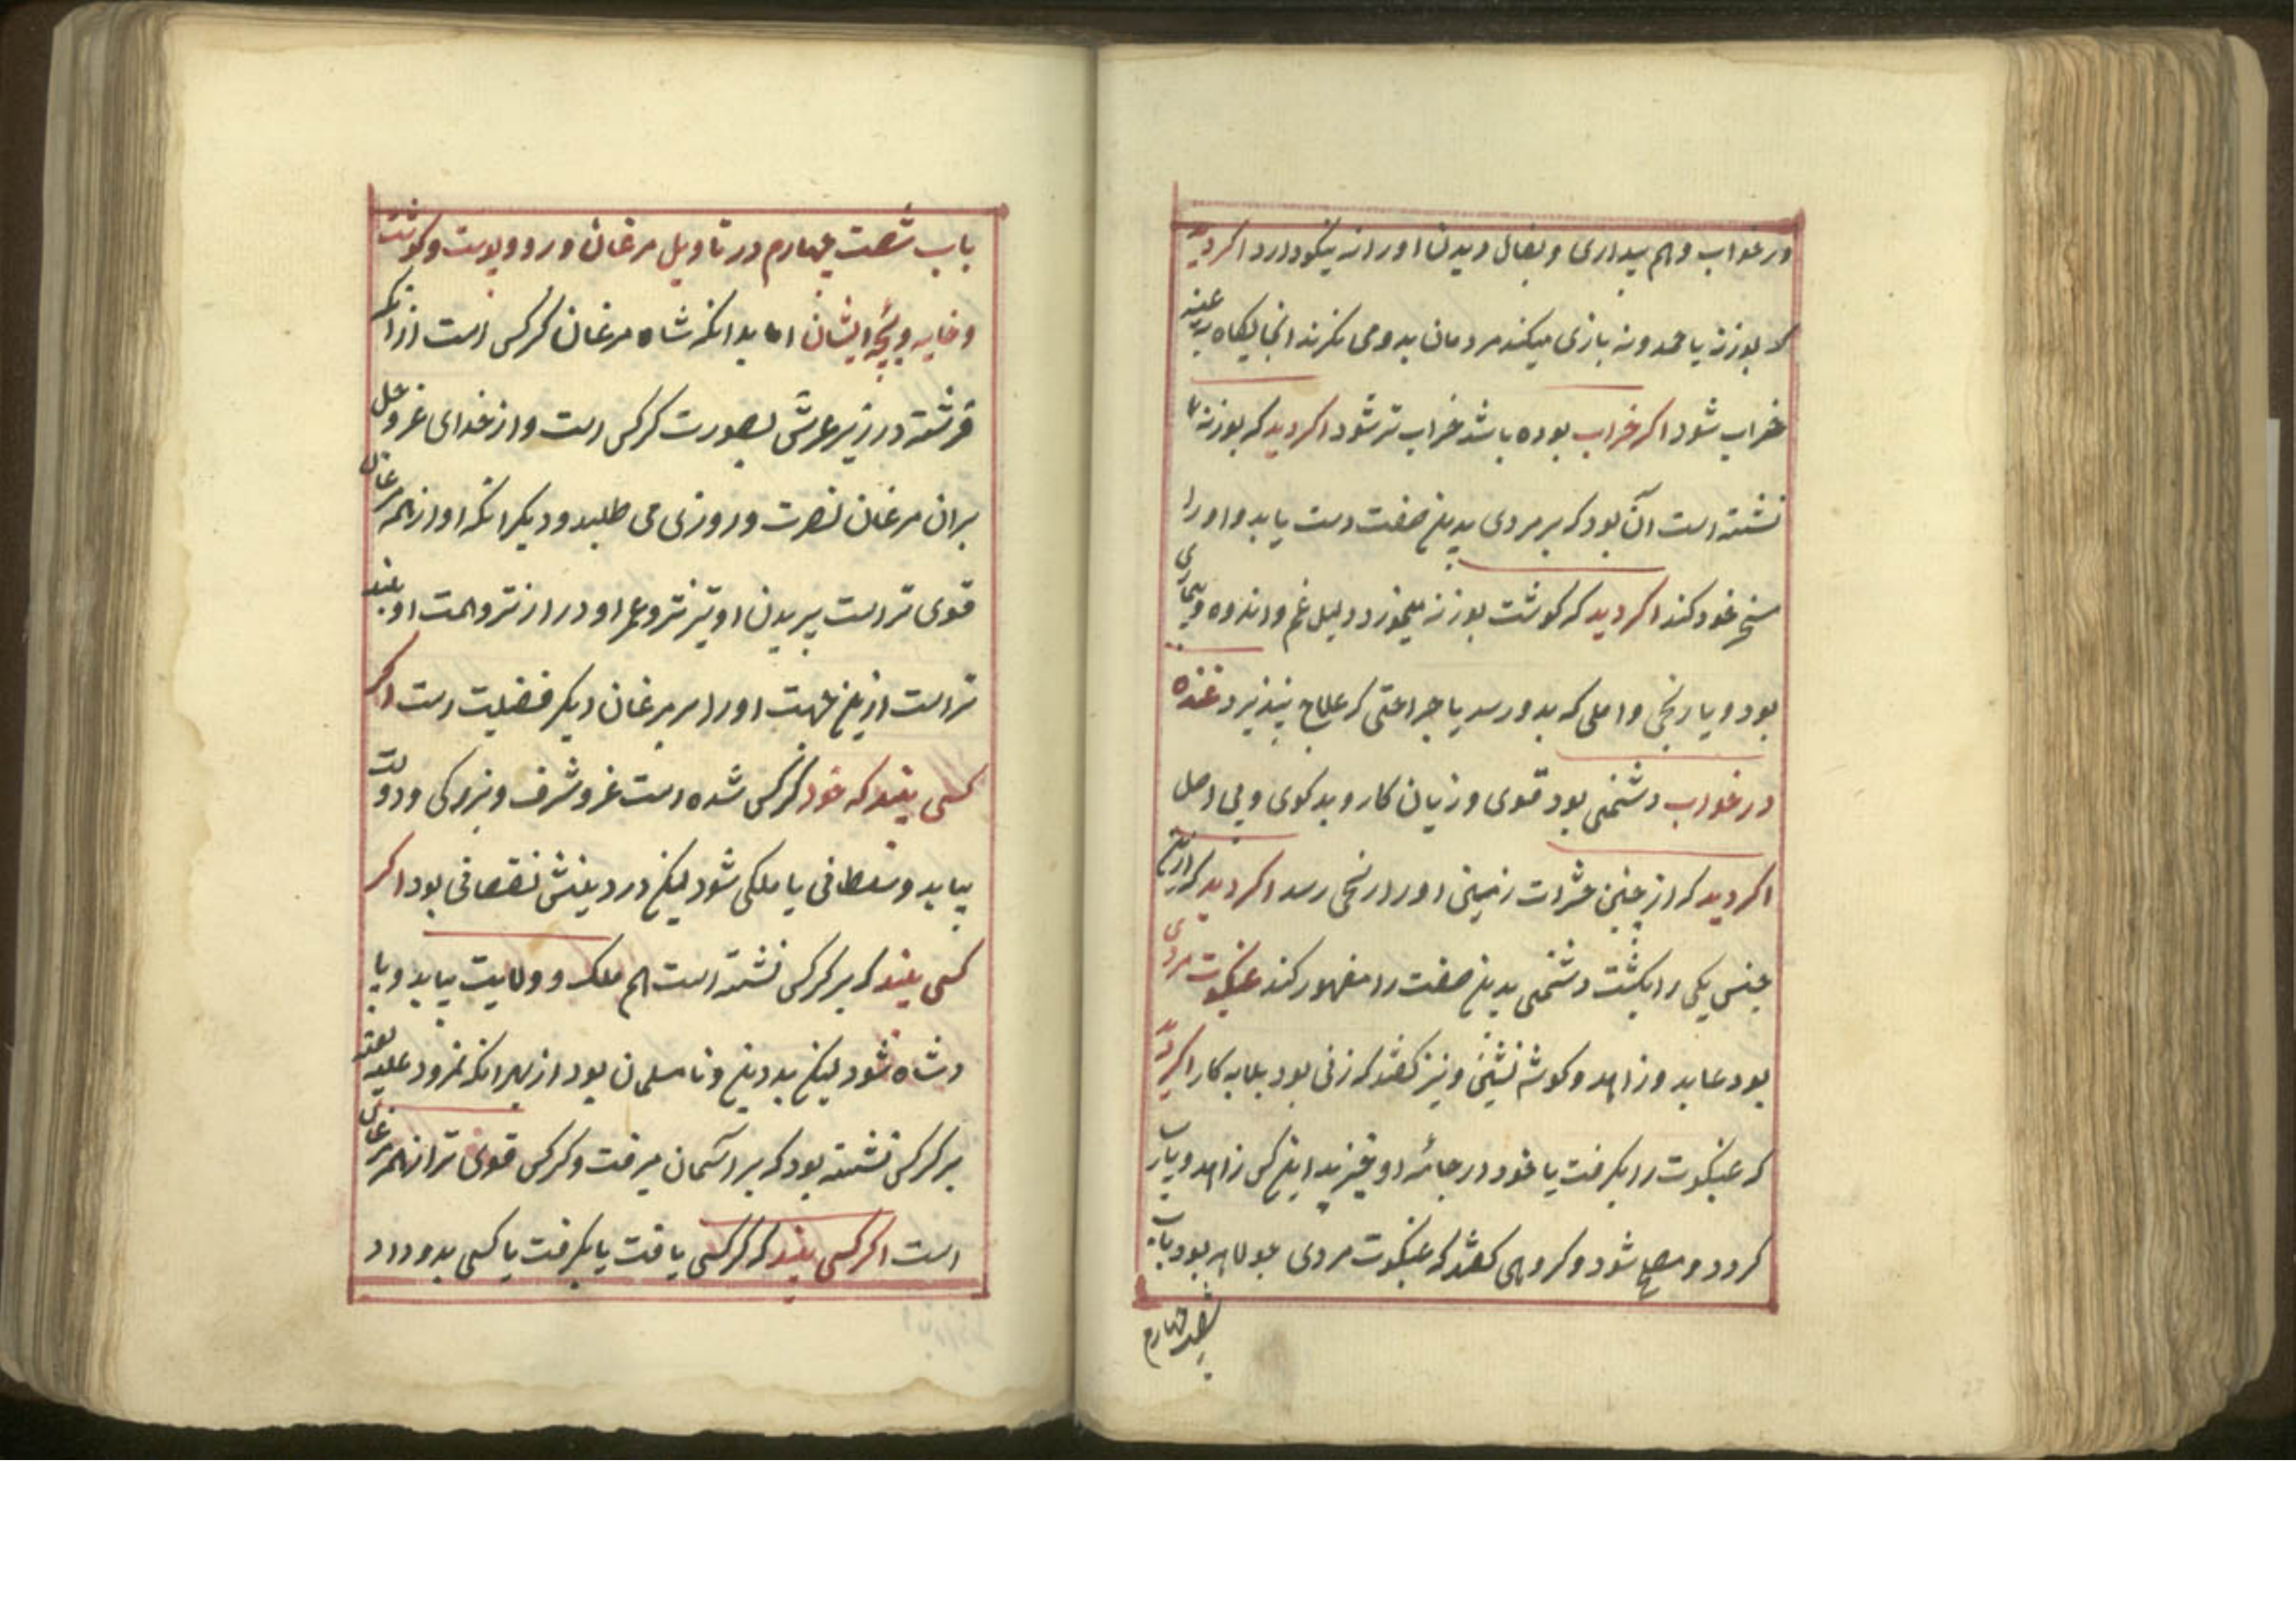 در خواب و هم بیداری و بفال دیدن او را نه نیکو دارد اکر دید
که بوزنه یا حمدونه بازی میکند مردمان بدو می نکرند انجایکاه به عینه
خراب شود اکر خراب بوده باشد خراب تر شود اکر دید که بوزنه
نشسته است آن بود که بر مردی بدین صفت دست یابد و او را
خود کند اکر دید که کوشت بوزنه میخورد دلیل غم و اندوه و بیماری
بود و یا رنجی و املی که بدو رسد یا جراحتی که علاج نپذیرد غنده
در خواب دشمنی بود قوی و زیان کار و بد کوی و بی اصل
اکر دید که از چنین حشرات زمینی او را رنجی رسد اکر دید که ازین
جنس یکی را بکشت دشمنی بدین صفت را مقهور کند عنکبوت مردی
بود عابد و زاهد و کوشه نشین و نیز کفتند که زنی بود بلابه کار اکر دید
که عنکبوت را بکرفت یا خود در جامه او خزید این کس زاهد و پارسا
کردد و مصلح شود و کروهی کفتند که عنکبوت مردی جولاهه بود باب
شصت چهارم
باب شصت چهارم در تاویل مرغان و رود و پوست و کوشت
و خایه و بچه ایشان اما بدانکه شاه مرغان کرکس است از آنکه
فرشته در زیر عرش بصورت کرکس است و از خدای عز و جل
بران مرغان نصرت و روزی می طلبد و دیکر انکه او از همه مرغان
قوی تر است پریدن او تیزتر و عمر او درازتر و همت او بلند
تر است ازین جهت او را بر مرغان دیکر فضلیت است اکر
کسی بیند که خود کرکس شده است عز و شرف و بزرکی و دولت
بیابد و سلطانی یا ملکی شود لیکن در دینش نقصانی بود اکر
کسی بیند که بر کرکس نشسته است هم ملک و ولایت بیابد و پا
دشاه شود لیکن بد دین و نامسلمان بود از بهر انکه نمرود علیه لعنه
بر کرکس نشسته بود که بر آسمان میرفت و کرکس قوی تر از همه مرغان
است اکر کسی بیند که کرکسی یافت یا بکرفت یا کسی بدو داد